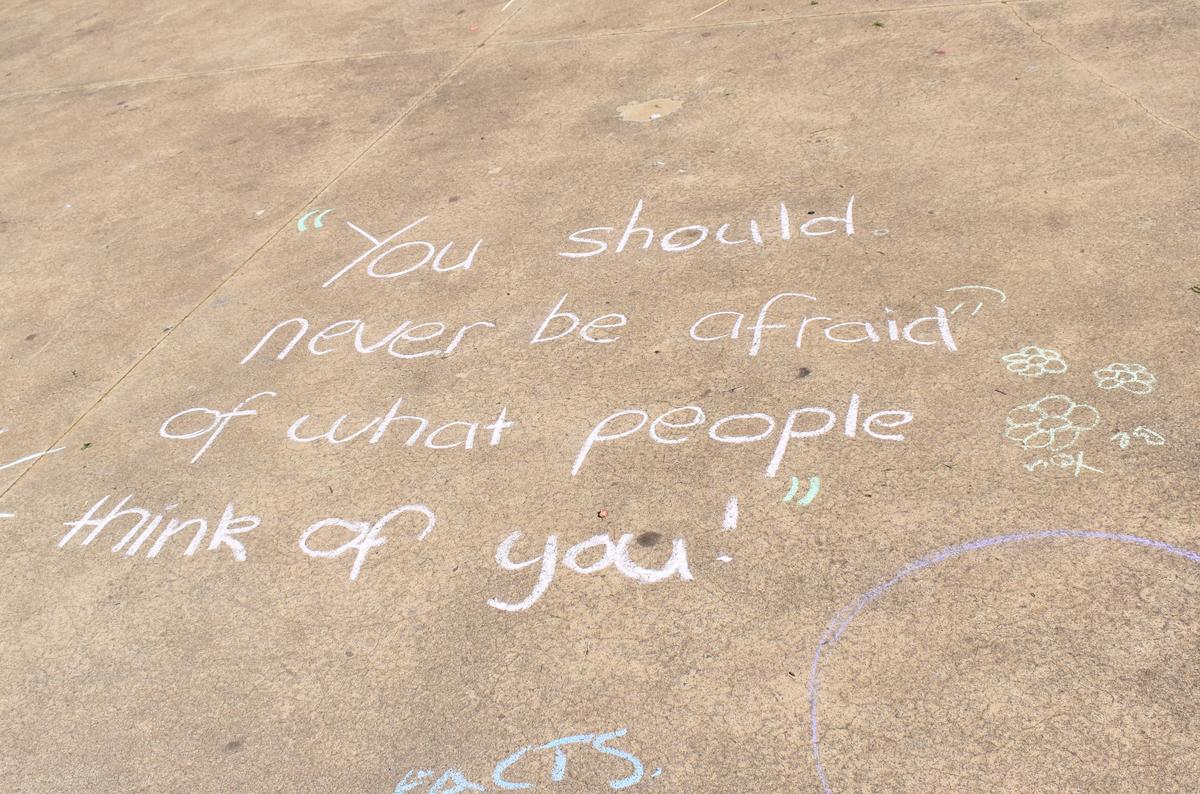 “You should.
never be afraid
of what people
think of you!”